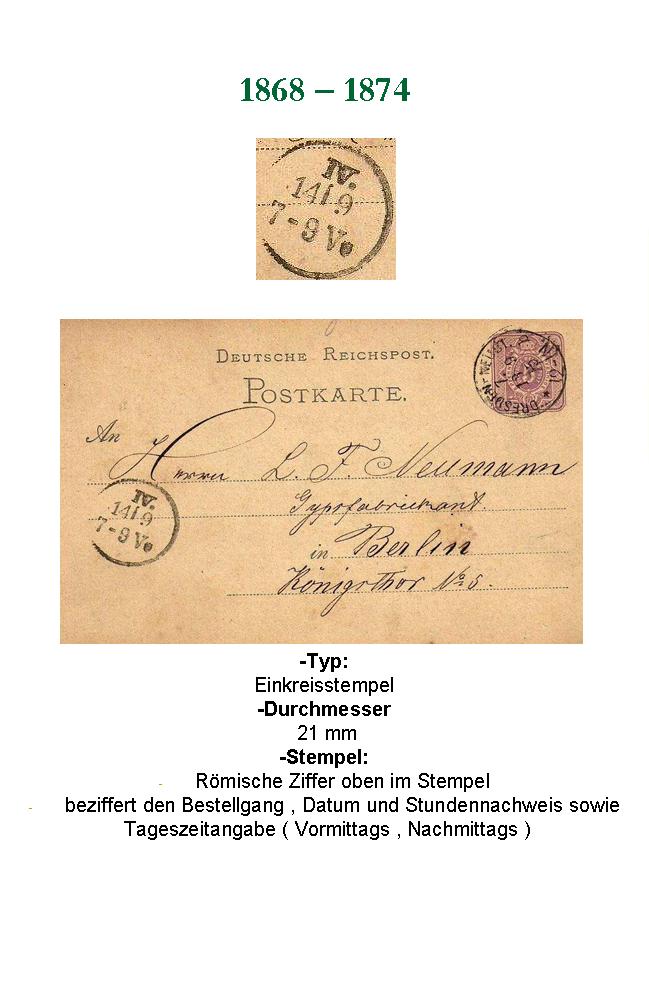 1868 – 1874
IV.
14/.9
7-9 V.
DEUTSCHE REICHSPOST.
POSTKARTE.
DRESDEN-NEUST.
An
Herrn L. F. Neumann
Gypsfabrickant
in Berlin
Königsthor No 5.
IV.
14/.9
7-9 V.
-Typ:
Einkreisstempel
-Durchmesser
21 mm
-Stempel:
- Römische Ziffer oben im Stempel
- beziffert den Bestellgang , Datum und Stundennachweis sowie
Tageszeitangabe ( Vormittags , Nachmittags )